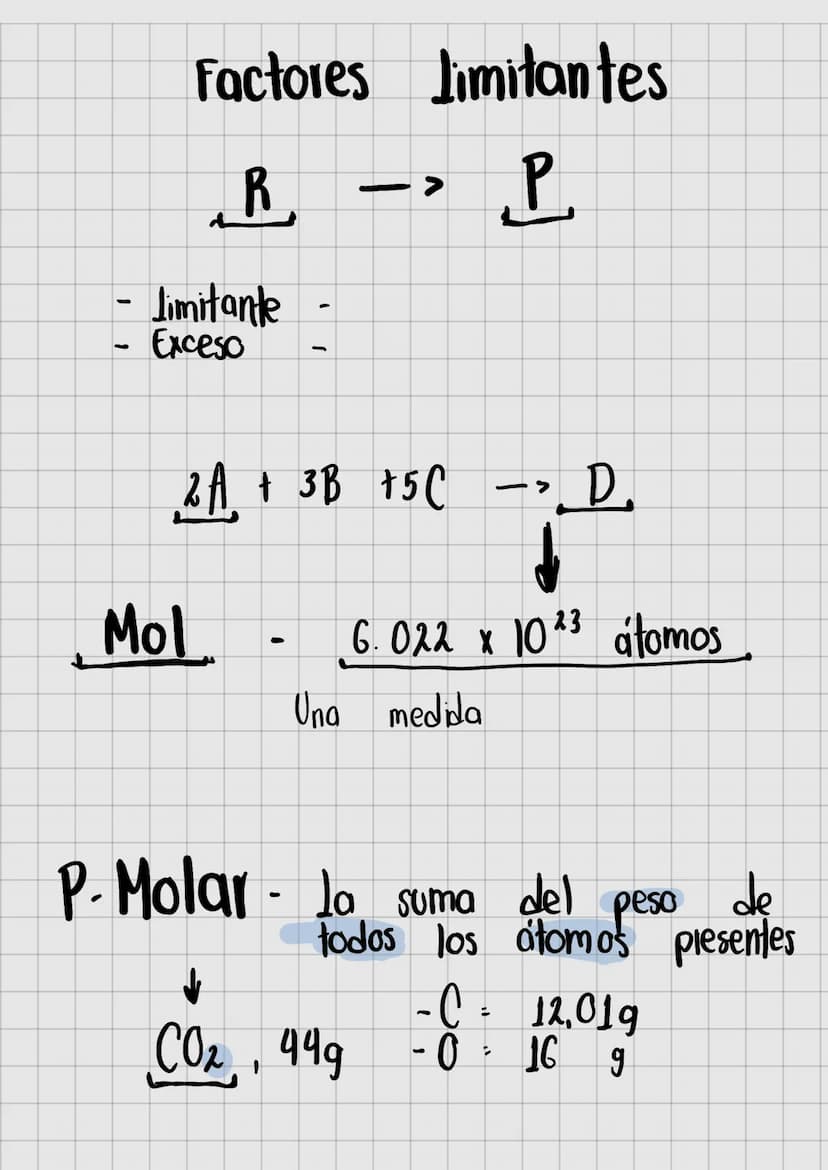 Factores limitantes
R —> P
- limitante -
- Exceso -
2A + 3B +5C —> D
Mol - 6.022 x 10²³ átomos
Una medida
P. Molar - la suma del peso de
todos los átomos presentes
- C = 12,01g
CO₂, 44g - O = 16 g